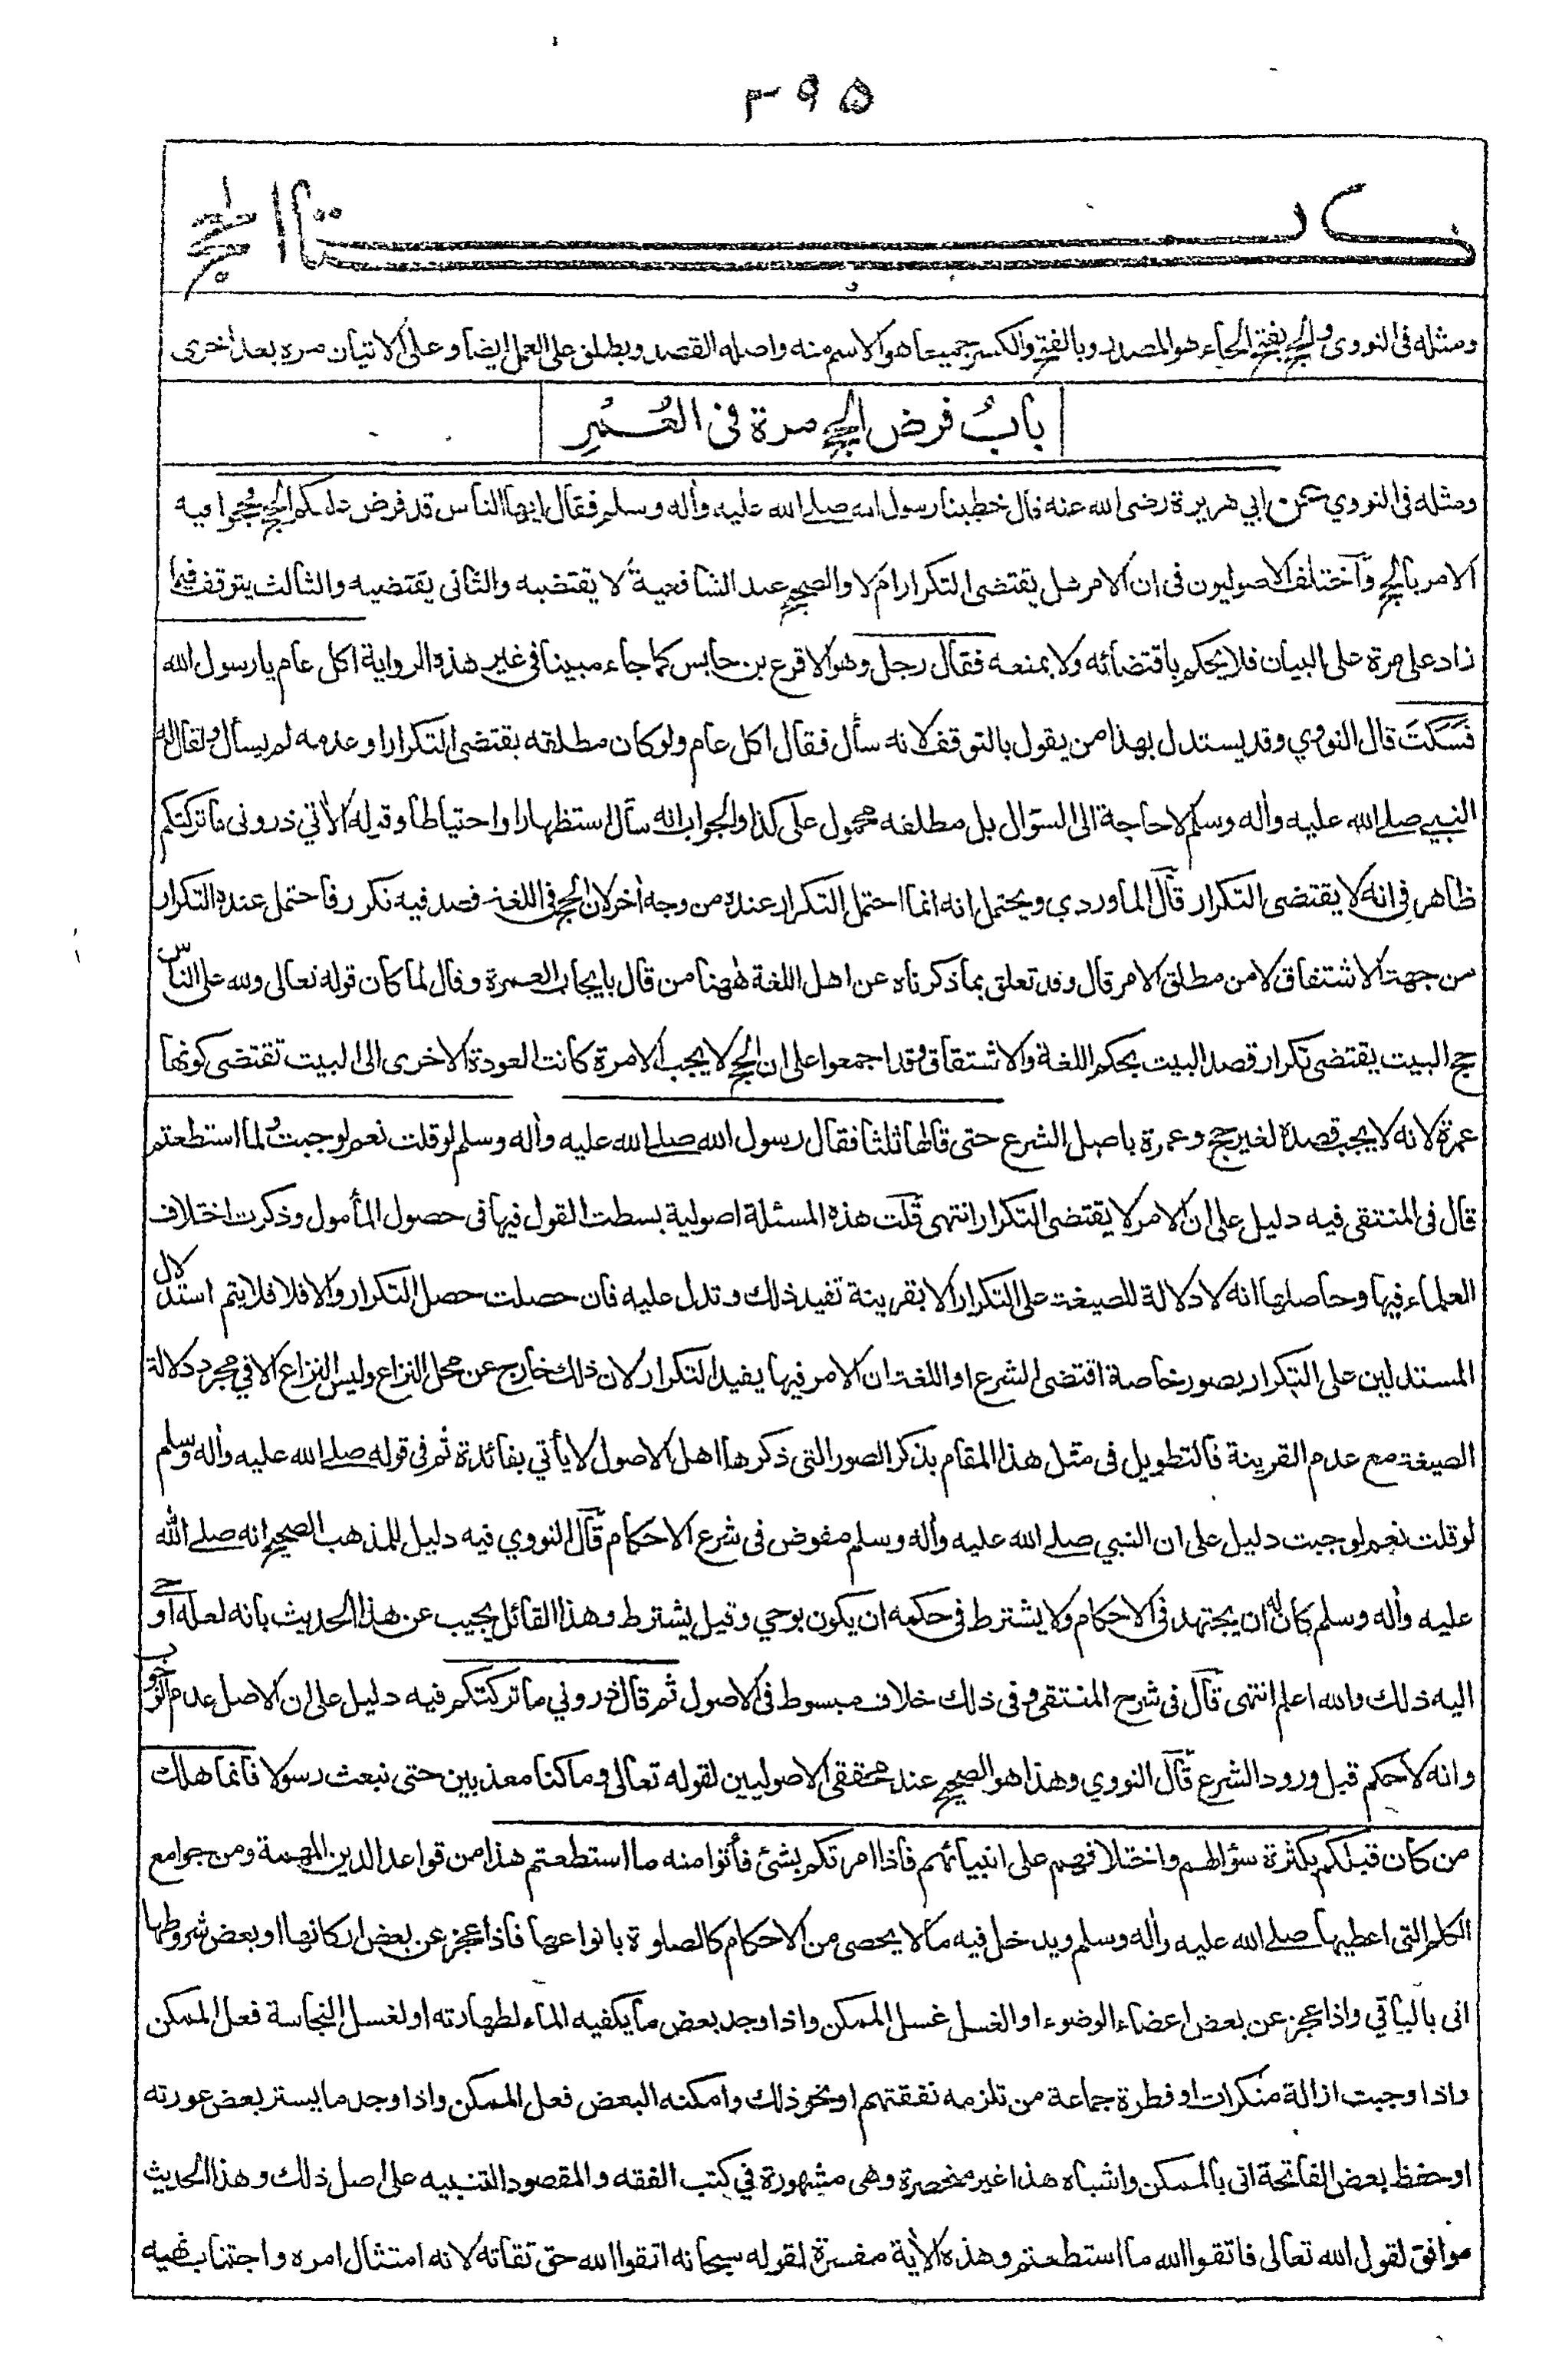 ٣٩٥
كتاب الحج
ومثله فى النووى والحج بفتح الحاء هو المصدر وبالفتح والكسر جميعا هو الاسم منه واصله القصد ويطلق على العمل ايضا وعلى الاتيان مرة بعد اخرى
بابُ فرض الحج مرة فى العُمْرِ
ومثله فى النووي عن ابي هريرة رضى الله عنه قال خطبنا رسول الله صلى الله عليه وأله وسلم فقال ايها الناس قد فرض عليكم الحج فحجوا فيه
الامر بالحج وآختلف الاصوليون فى ان الامر هل يقتضى التكرار ام لا والصحيح عند الشافعية لا يقتضيه والثانى يقتضيه والثالث يتوقف فيما
زاد على مرة على البيان فلا يحكم باقتضائه ولا بمنعه فقال رجل وهو الاقرع بن حابس كما جاء مبينا فى غير هذه الرواية اكل عام يا رسول الله
فَسَكَتَ قال النووي وقد يستدل بهذا من يقول بالتوقف لانه سأل فقال اكل عام ولو كان مطلقه يقتضى التكرار او عدمه لم يسأل ولقال له
النبي صلى الله عليه وأله وسلم لا حاجة الى السؤال بل مطلقه محمول على كذا والجواب انه سأل استظهارا واحتياطا وقوله الأتي ذرونى ما تركتكم
ظاهر فى انه لا يقتضى التكرار قآل الماوردي ويحتمل انه انما احتمل التكرار عنده من وجه أخر لان الحج فى اللغة قصد فيه تكرر فاحتمل عنده التكرار
من جهة الاشتقاق لا من مطلق الامر قال وقد تعلق بما ذكرناه عن اهل اللغة ههنا من قال بايجاب العمرة وقال لما كان قوله تعالى ولله على الناس
حج البيت يقتضى تكرار قصد البيت بحكم اللغة والاشتقاق وقد اجمعوا على ان الحج لا يجب الا مرة كانت العودة الاخرى الى البيت تقتضى كونها
عمرة لانه لا يجب قصده لغير حج وعمرة باصل الشرع حتى قالها ثلثا فقال رسول الله صلى الله عليه وأله وسلم لو قلت نعم لوجبت ولما استطعتم
قال فى المنتقى فيه دليل على ان الامر لا يقتضى التكرار انتهى قُلت هذه المسئلة اصولية بسطت القول فيها فى حصول المأمول وذكرت اختلاف
العلماء فيها وحاصلها انه لا دلالة للصيغة على التكرار الا بقرينة تفيد ذلك وتدل عليه فان حصلت حصل التكرار والا فلا فلا يتم استدلال
المستدلين على التكرار بصور خاصة اقتضى الشرع او اللغة ان الامر فيها يفيد التكرار لان ذلك خارج عن محل النزاع وليس النزاع الا في مجرد دلالة
الصيغة مع عدم القرينة فالتطويل فى مثل هذا المقام بذكر الصور التى ذكرها اهل الاصول لا يأتي بفائدة ثم فى قوله صلى الله عليه وأله وسلم
لو قلت نعم لوجبت دليل على ان النبي صلى الله عليه وأله وسلم مفوض فى شرع الاحكام قآل النووي فيه دليل للمذهب الصحيح انه صلى الله
عليه وأله وسلم كان له ان يجتهد فى الاحكام ولا يشترط فى حكمه ان يكون بوحي وقيل يشترط وهذا القائل يجيب عن هذا الحديث بانه لعله اوحي
اليه ذلك والله اعلم انتهى قآل فى شرح المنتقى وفى ذلك خلاف مبسوط فى الاصول ثم قال ذروني ما تركتكم فيه دليل على ان الاصل عدم الوجوب
وانه لا حكم قبل ورود الشرع قآل النووي وهذا هو الصحيح عند محققى الاصوليين لقوله تعالى وما كنا معذبين حتى نبعث رسولا فانما هلك
من كان قبلكم بكثرة سؤالهم واختلافهم على انبيائهم فاذا امرتكم بشئ فأتوا منه ما استطعتم هذا من قواعد الدين المهمة ومن جوامع
الكلم التى اعطيها صلى الله عليه وأله وسلم ويدخل فيه ما لا يحصى من الاحكام كالصلوة بانواعها فاذا عجز عن بعض اركانها او بعض شروطها
اتى بالباقي واذا عجز عن بعض اعضاء الوضوء او الغسل غسل الممكن واذا وجد بعض ما يكفيه الماء لطهارته او لغسل النجاسة فعل الممكن
واذا وجبت ازالة منكرات او فطرة جماعة من تلزمه نفقتهم او نحو ذلك وامكنه البعض فعل الممكن واذا وجد ما يستر بعض عورته
او حفظ بعض الفاتحة اتى بالممكن واشباه هذا غير منحصرة وهى مشهورة في كتب الفقه والمقصود التنبيه على اصل ذلك وهذا الحديث
موافق لقول الله تعالى فاتقوا الله ما استطعتم وهذه الأية مفسرة لقوله سبحانه اتقوا الله حق تقاته لانه امتثال امره واجتناب نهيه